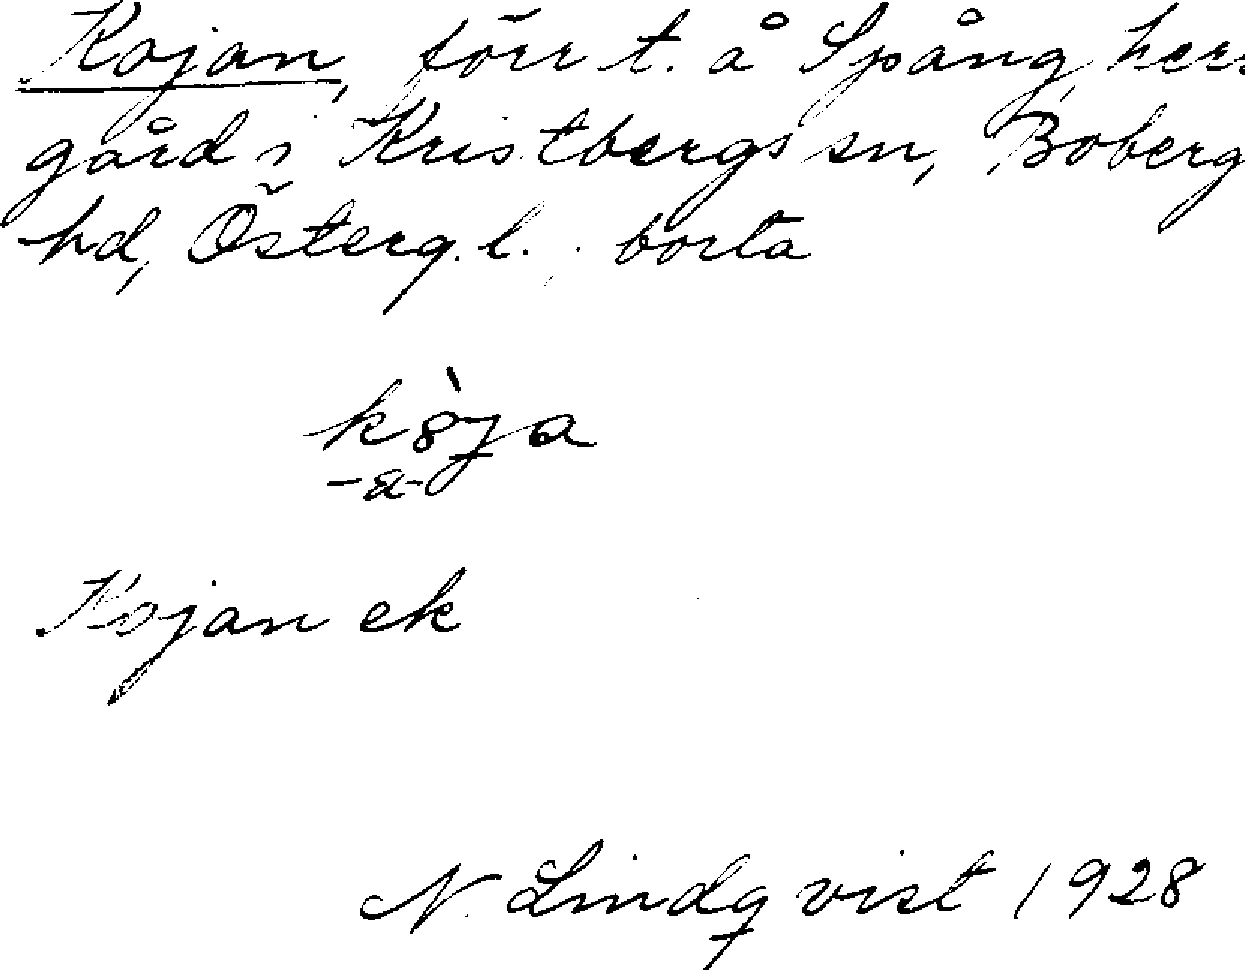 Kojan, förr t. å Spång, herr
gård i Kristbergs sn, Boberg
hd, Österg. l.; borta
kòja
-a-
Kojan ek
N. Lindqvist 1928